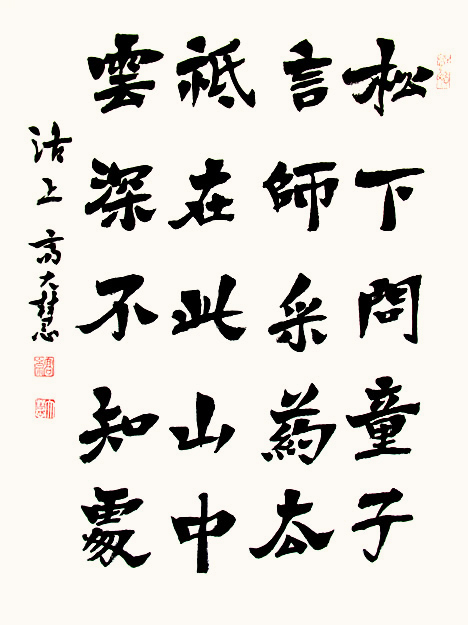 松下問童子
言師采葯去
祇在此山中
雲深不知處
沽上高大慧